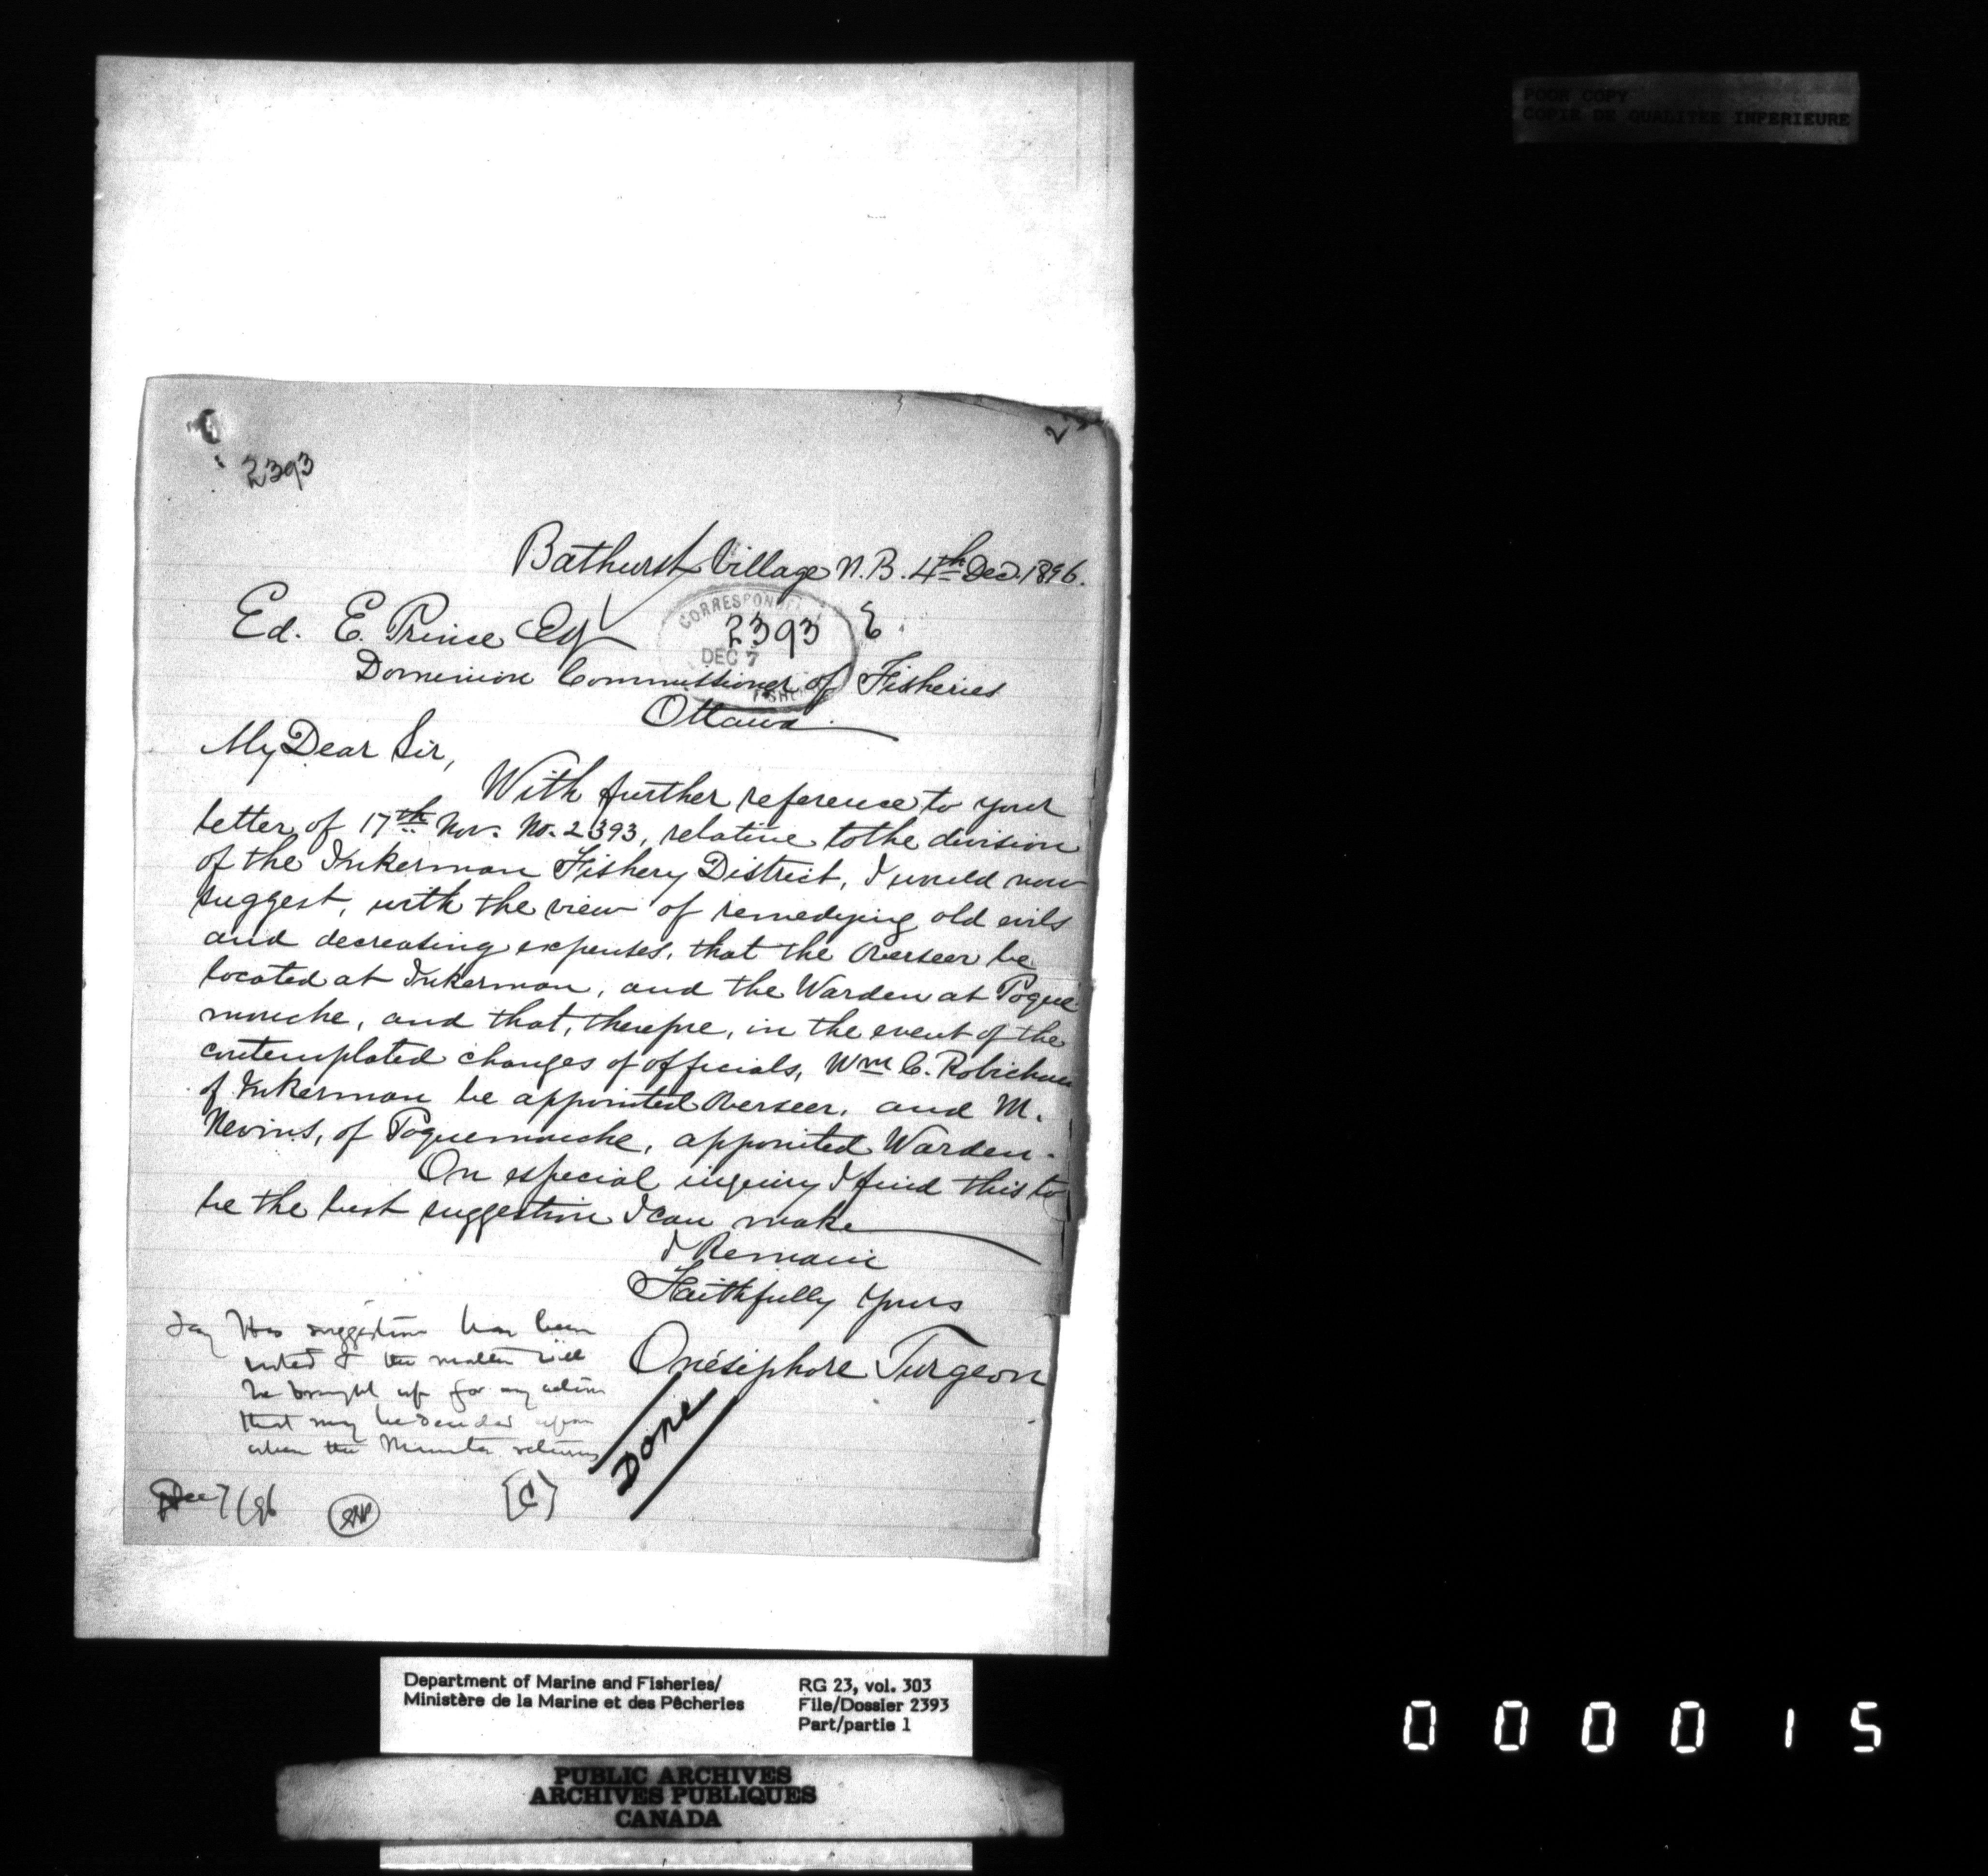 POOR COPY
COPIE DE QUALITEE INFERIEURE
2393
Bathurst Village N.B. 4th Dec. 1896.
Ed. E. Prince Esq
CORRESPONDENCE
2393
DEC 7
FISHERIES
Dominion Commissioner of Fisheries
Ottawa.
My Dear Sir,
With further reference to your
letter of 17th Nov. No. 2393, relative to the division
of the Inkerman Fishery District, I would now
suggest, with the view of remedying old evils
and decreasing expenses, that the Overseer be
located at Inkerman, and the Warden at Poque-
mouche, and that, therefore, in the event of the
contemplated changes of officials, Wm C. Robichau
of Inkerman be appointed Overseer, and M.
Nevins, of Poquemouche, appointed Warden.
On especial inquiry I find this to
be the best suggestion I can make
I Remain
Faithfully Yours
Onésiphore Turgeon
Say His suggestion has been
noted & the matter will
be brought up for any action
that may be decided upon
when the Minister returns
Done
Dec 7/96
[C]
Department of Marine and Fisheries/
Ministère de la Marine et des Pêcheries
RG 23, vol. 303
File/Dossier 2393
Part/partie 1
PUBLIC ARCHIVES
ARCHIVES PUBLIQUES
CANADA
000015